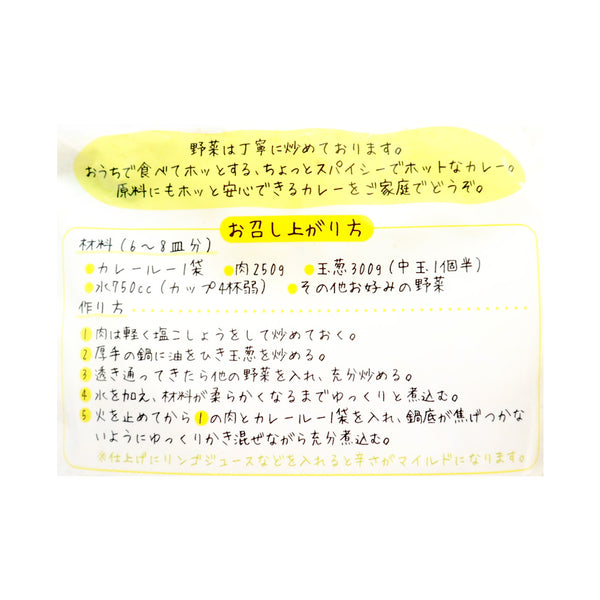 野菜は丁寧に炒めております。
おうちで食べてホッとする、ちょっとスパイシーでホットなカレー。
原料にもホッと安心できるカレーをご家庭でどうぞ。
お召し上がり方
材料(6〜8皿分)
●カレールー1袋 ●肉250g ●玉葱300g(中玉1個半)
●水750cc(カップ4杯弱) ●その他お好みの野菜
作り方
1 肉は軽く塩こしょうをして炒めておく。
2 厚手の鍋に油をひき玉葱を炒める。
3 透き通ってきたら他の野菜を入れ、充分炒める。
4 水を加え、材料が柔らかくなるまでゆっくりと煮込む。
5 火を止めてから1の肉とカレールー1袋を入れ、鍋底が焦げつかな
いようにゆっくりかき混ぜながら充分煮込む。
※仕上げにリンゴジュースなどを入れると辛さがマイルドになります。